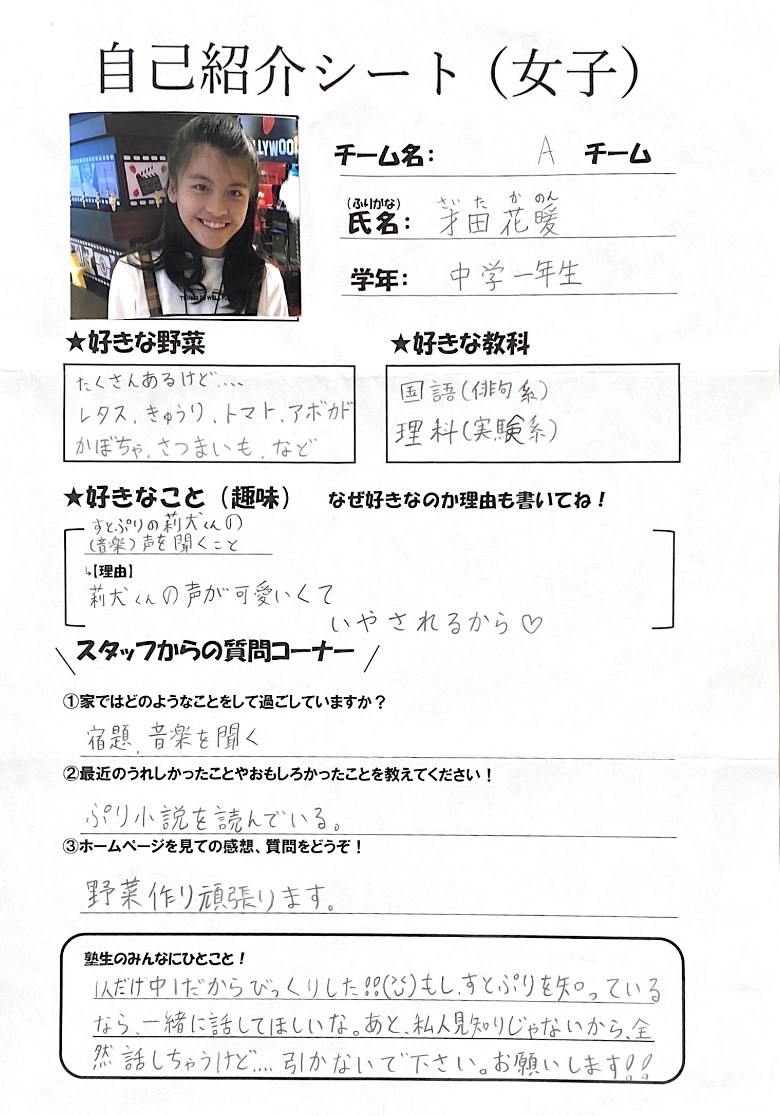 自己紹介シート（女子）
LLYWOOD
チーム名： A チーム
(ふりがな) ざいた かのん
氏名： 才田 花暖
学年： 中学一年生
★好きな野菜
たくさんあるけど....
レタス、きゅうり、トマト、アボカド
かぼちゃ、さつまいも、など
★好きな教科
国語(俳句系)
理科(実験系)
★好きなこと（趣味） なぜ好きなのか理由も書いてね！
すとぷりの莉犬くんの
(音楽)声を聞くこと
↳【理由】
莉犬くんの声が可愛いくて
いやされるから♡
＼スタッフからの質問コーナー／
①家ではどのようなことをして過ごしていますか？
宿題、音楽を聞く
②最近のうれしかったことやおもしろかったことを教えてください！
ぷり小説を読んでいる。
③ホームページを見ての感想、質問をどうぞ！
野菜作り頑張ります。
塾生のみんなにひとこと！
1人だけ中1だからびっくりした!!もし、すとぷりを知っている
なら、一緒に話してほしいな。あと、私人見知りじゃないから、全
然話しちゃうけど.... 引かないで下さい。お願いします!!